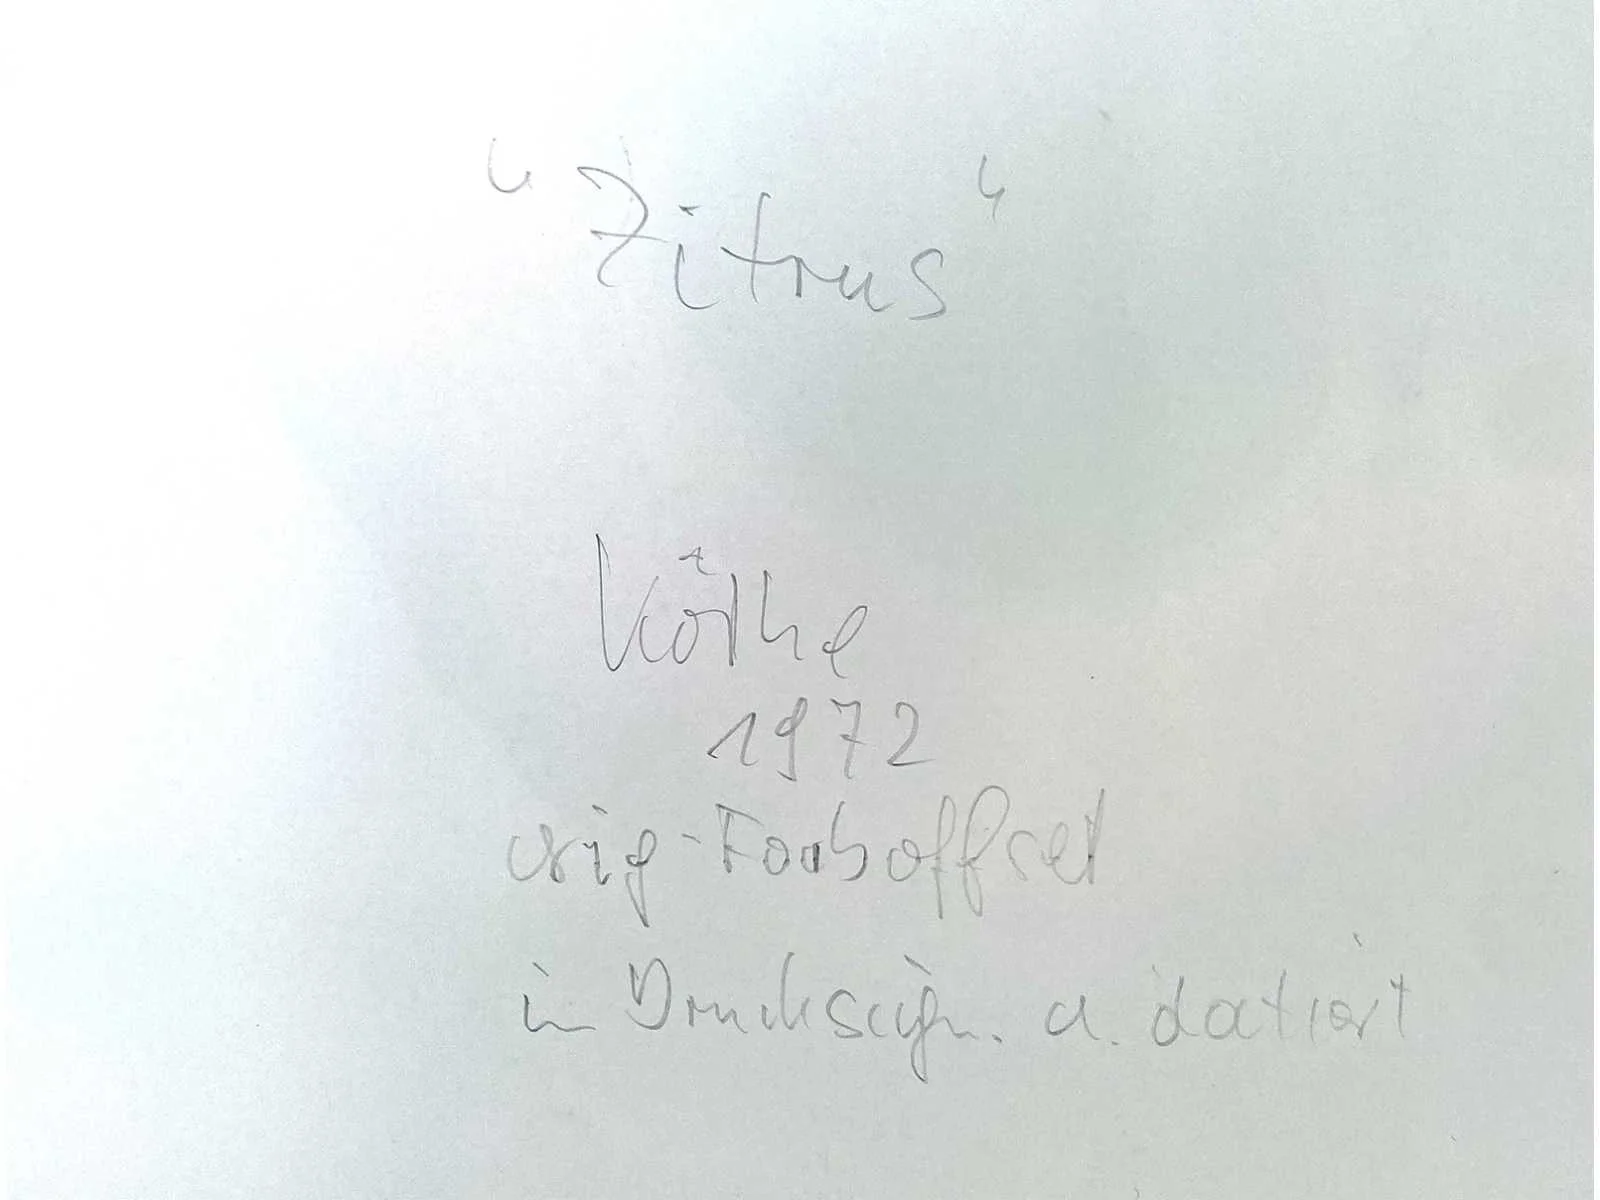 "Zitrus"
Köthe
1972
orig-Farboffset
in Druck sign. u. datiert